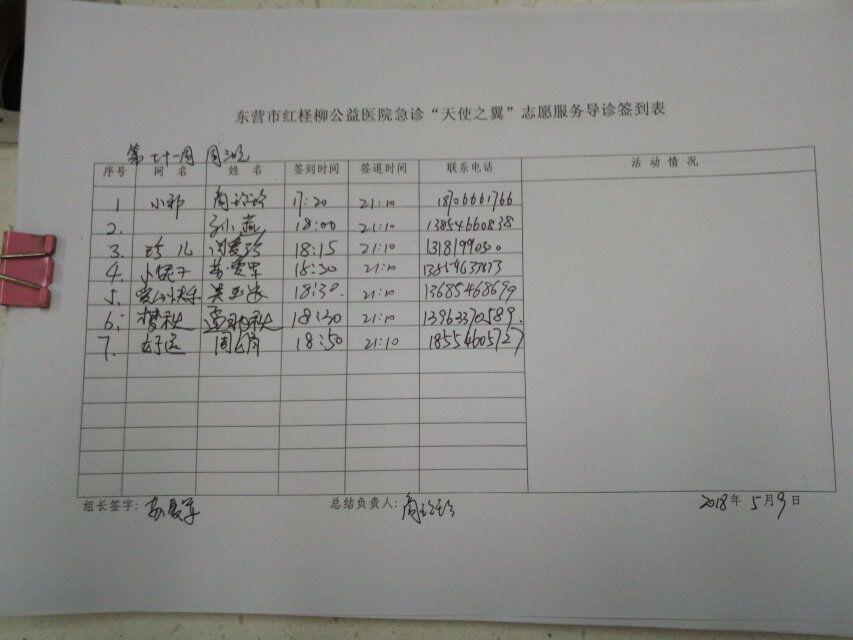 东营市红柽柳公益医院急诊“天使之翼”志愿服务导诊签到表
第七十一周 周三晚
序号 网 名 姓 名 签到时间 签退时间 联系电话 活 动 情 况
1 小祁 17:20 21:10 18706661766
2. 孙燕 18:00 21:10 13854660838
3. 玲儿 18:15 21:10 13181990300
4. 18:30 21:10
5. 18:30. 21:10 13685468699
6. 梦秋 18:30 21:10 13963370589.
7. 好运 周 18:50 21:10 18554605727
组长签字: 总结负责人: 2018年 5月9日